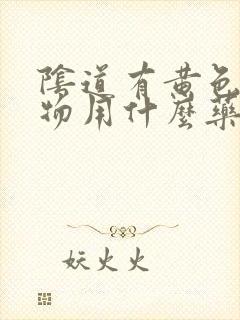 陰道有黄色
物用什麼藥
妖火火